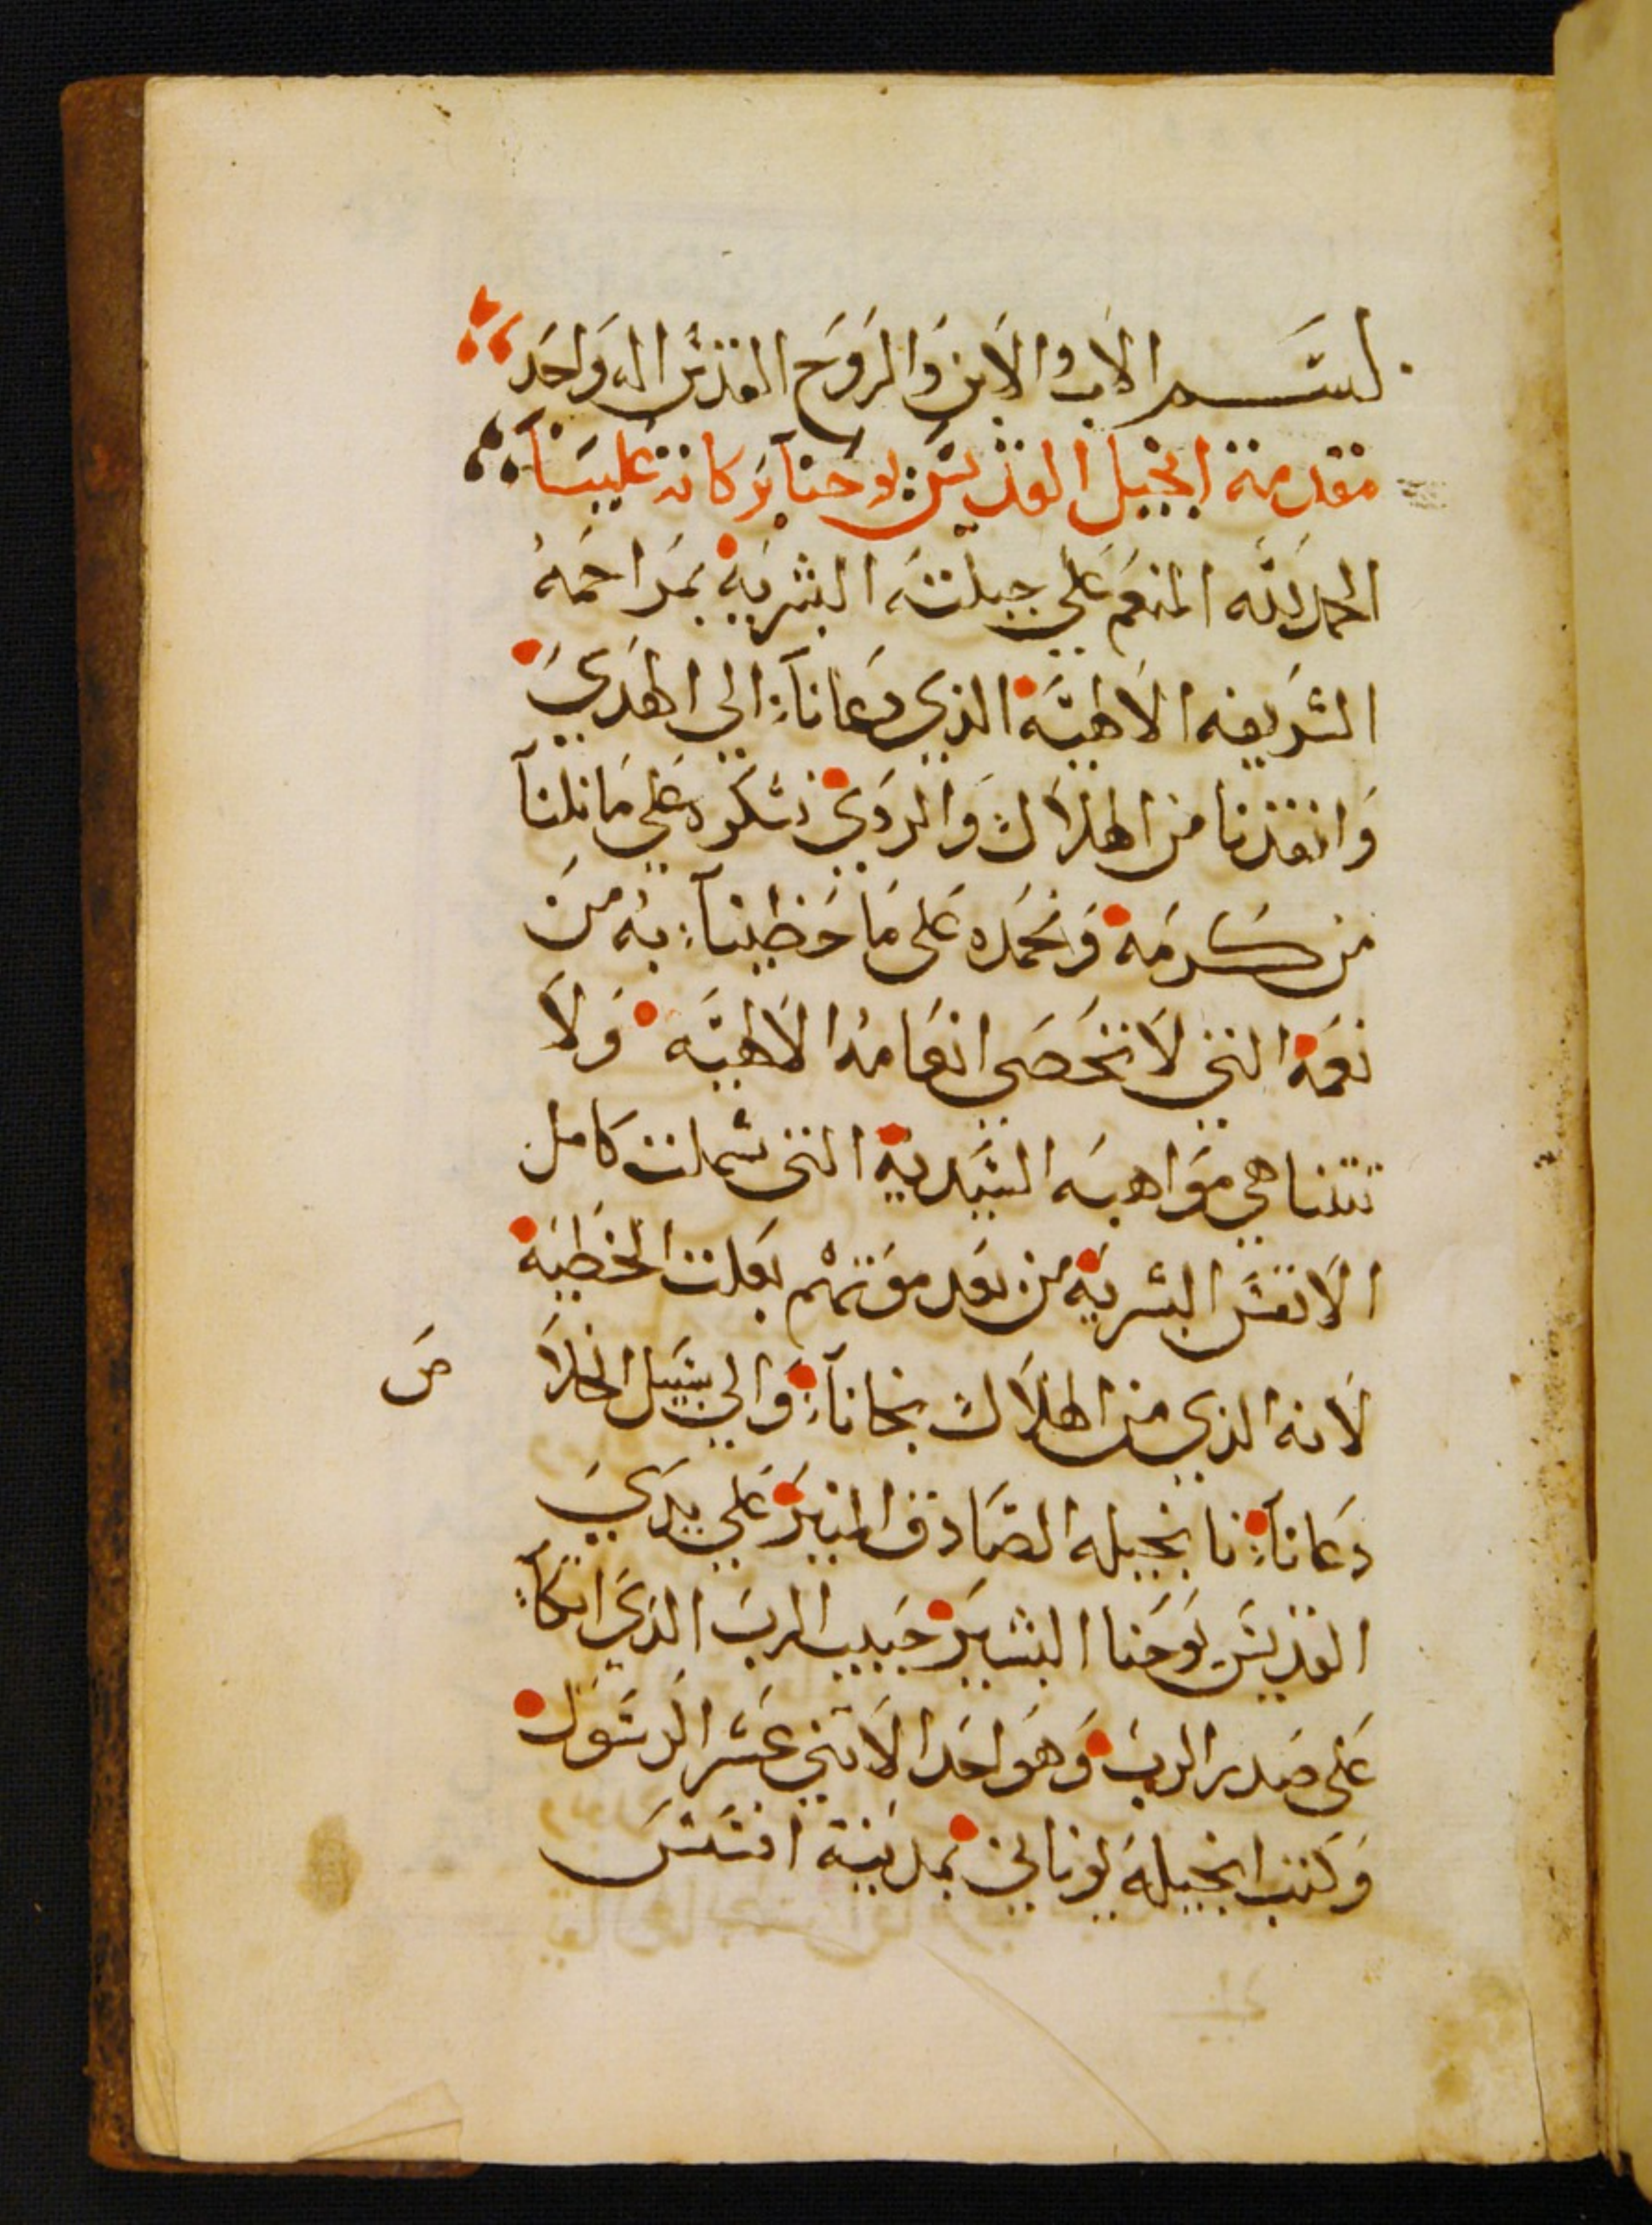 بسم الاب والابن والروح القدس اله واحد
مقدمة انجيل القديس يوحنا بركاته علينا
الحمد لله المنعم علي جبلته البشرية بمراحمه
الشريفه الالهية الذي دعانا الي الهدي
وانقذنا من الهلاك والردي نشكره علي ما نلنا
من كرمه ونحمده على ما حظينا به من
نعمه التي لا تحصي انعامه الالهية ولا
تتناهي مواهبه السيدية التي شملت كامل
الانفس البشرية من بعد موتهم بعلت الخطية
لانه الذي من الهلاك نجانا والي سبيل الخلا
ص
دعانا نا بجيله الصادق المنير علي يدي
القديس يوحنا البشير حبيب الرب الذي اتكا
على صدر الرب وهو احد الاتني عشر الرسول
وكتب انجيله يوناني بمدينة افسس